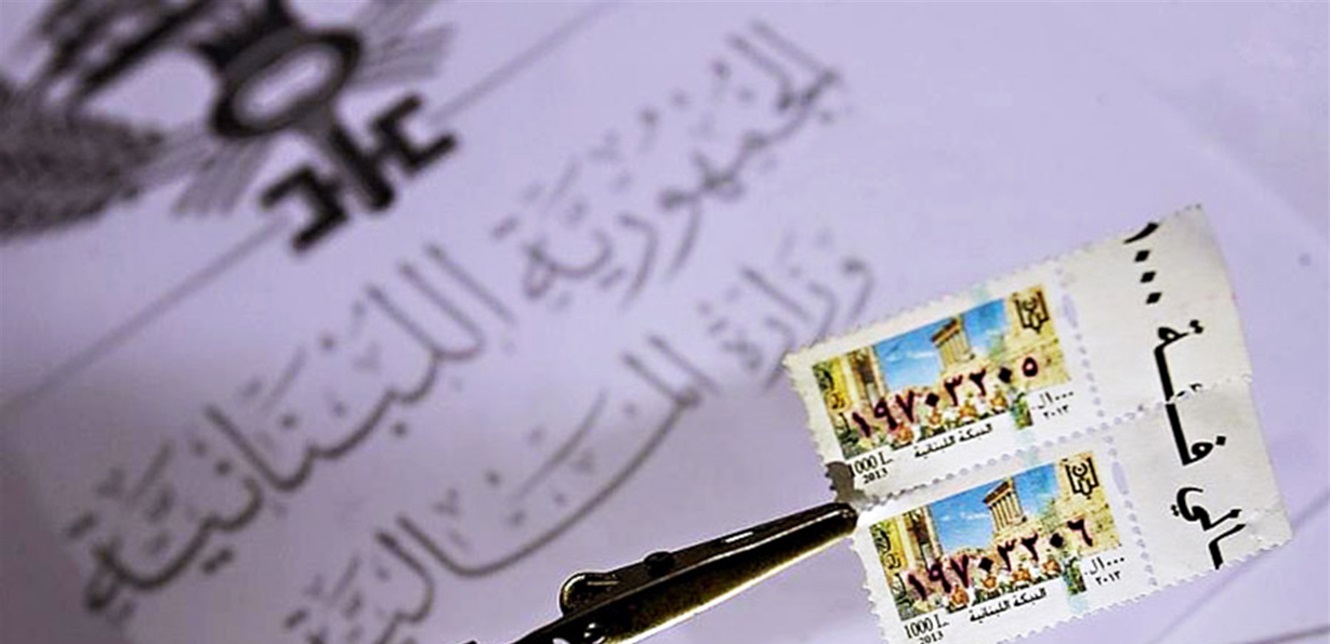 الجمهورية اللبنانية
وزارة المالية
١٩٧٠٣٢٠٥
١٠٠٠ل.
٢٠١٣
الجمهورية اللبنانية
1000 L.
2013
١٩٧٠٣٢٠٦
١٠٠٠ل.
٢٠١٣
الجمهورية اللبنانية
1000 L.
2013